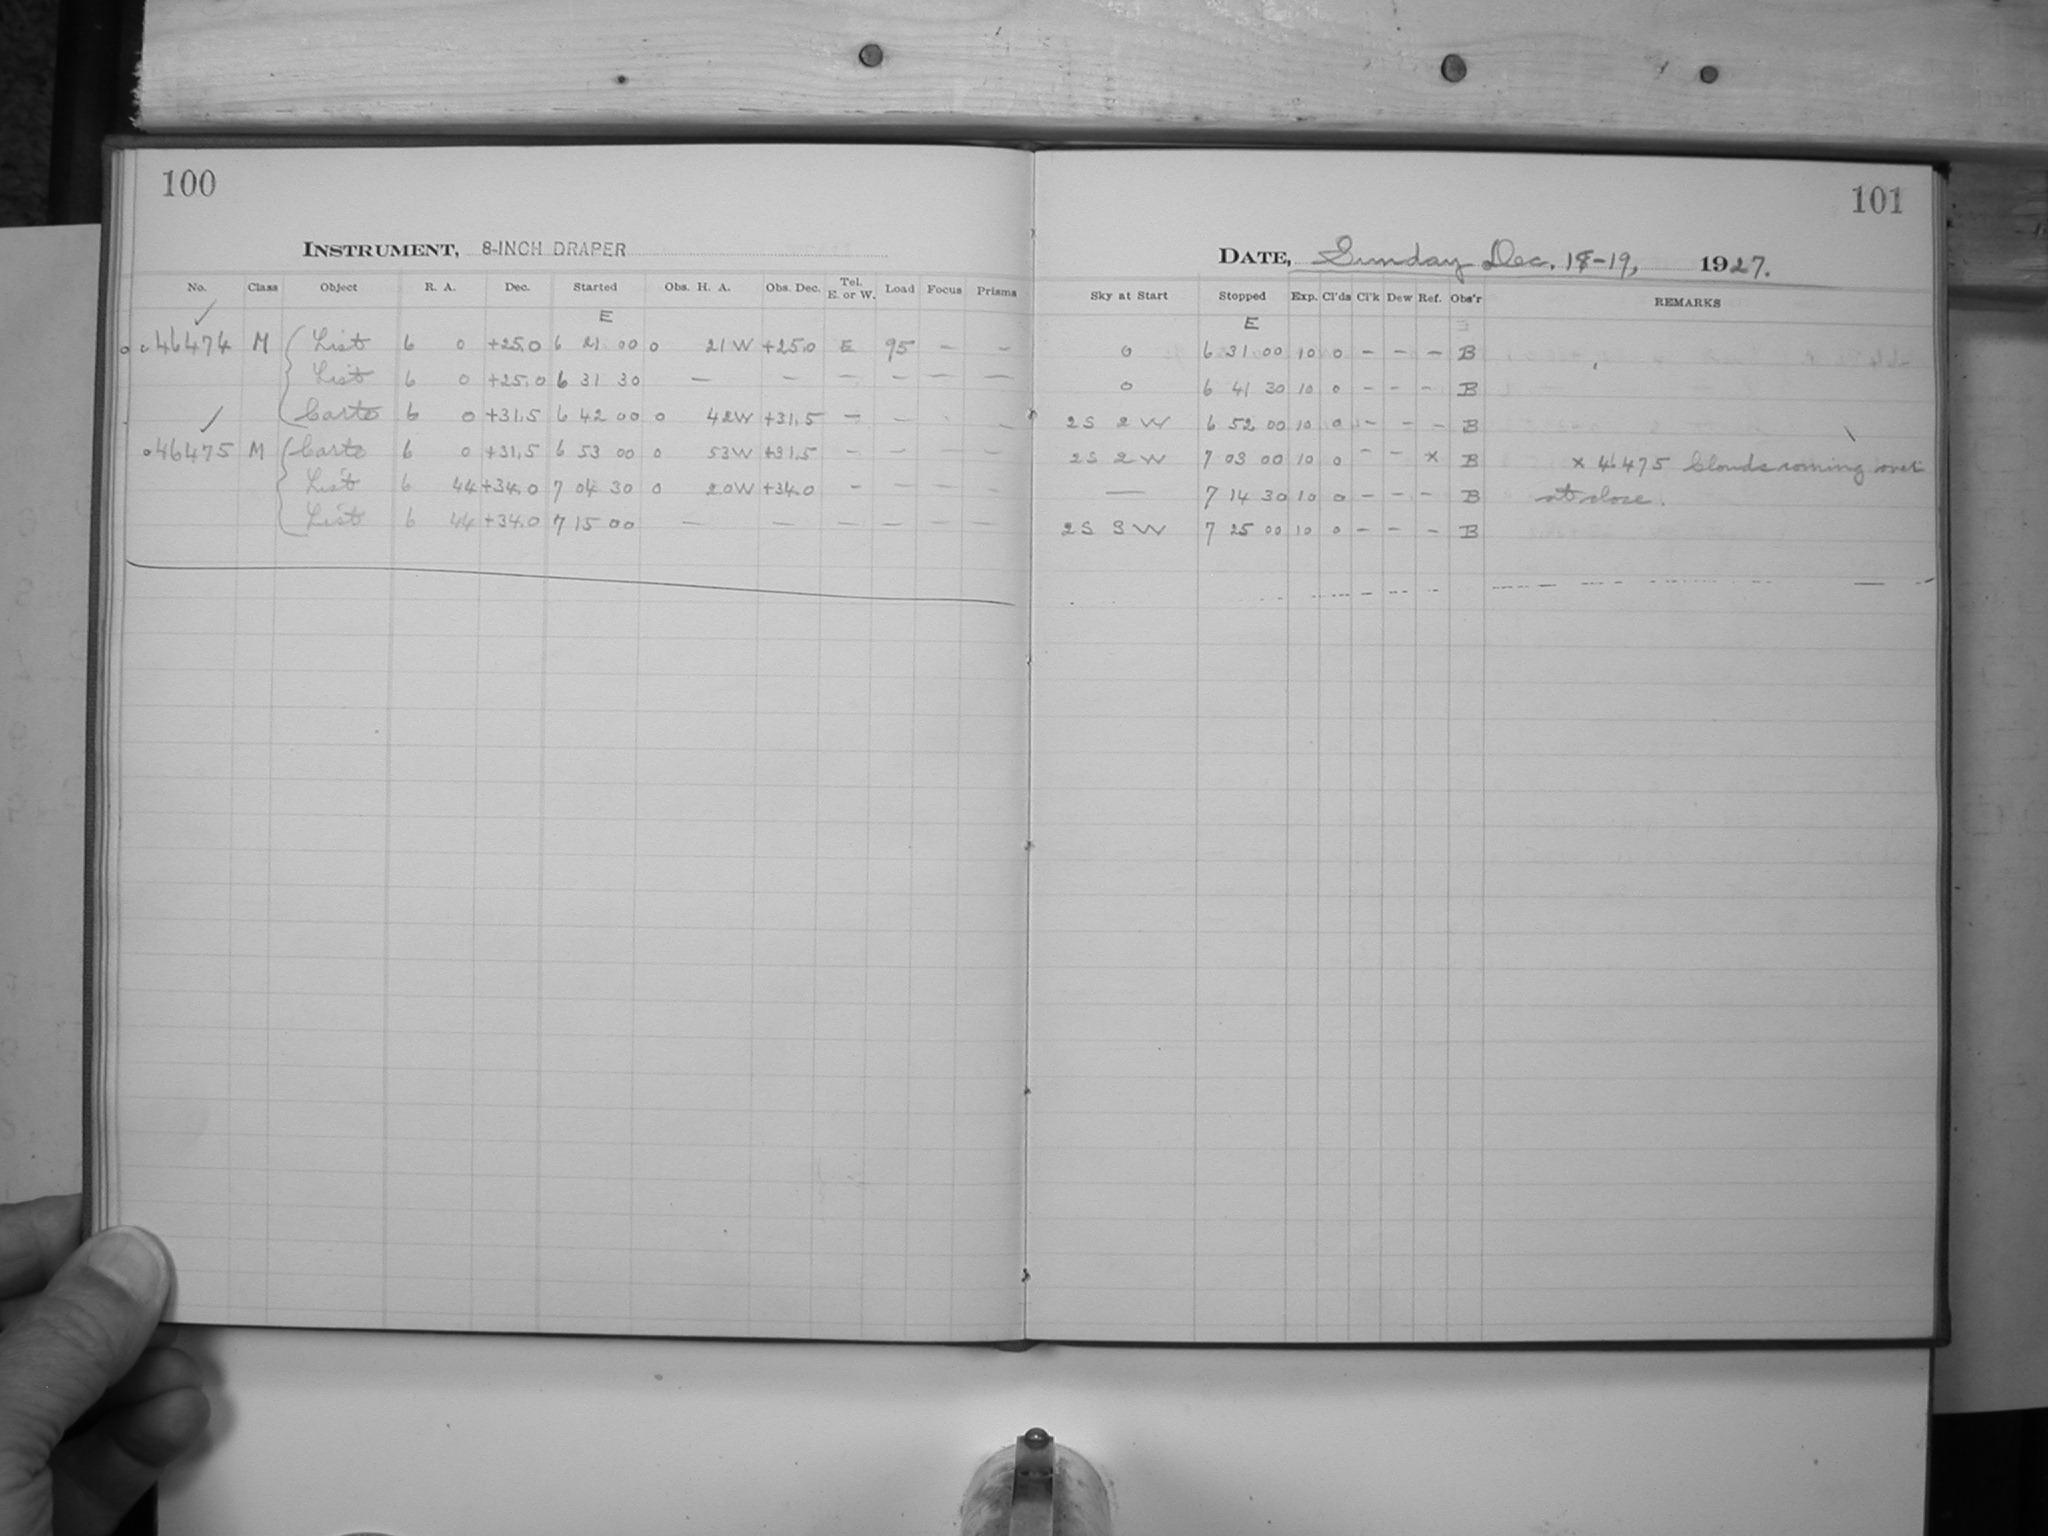 100
INSTRUMENT, 8-INCH DRAPER
No. Class Object R. A. Dec. Started Obs. H. A. Obs. Dec. Tel. E. or W. Load Focus Prisms
✓ E
46474 M List 6 0 +25.0 6 21 00 0 21 W +25.0 E 95 – –
List 6 0 +25.0 6 31 30 — — — — — —
✓ Carte 6 0 +31.5 6 42 00 0 42 W +31.5 — – - –
46475 M Carte 6 0 +31.5 6 53 00 0 53 W +31.5 – – – –
List 6 44 +34.0 7 04 30 0 20 W +34.0 – – – –
List 6 44 +34.0 7 15 00 — — — — — —
101
DATE, Sunday Dec. 18-19, 1927.
Sky at Start Stopped Exp. Cl'ds Cl'k Dew Ref. Obs'r REMARKS
E
0 6 31 00 10 0 – – – B
0 6 41 30 10 0 – – – B
2S 2W 6 52 00 10 0 – – – B
2S 2W 7 03 00 10 0 – – × B × 46475 Clouds coming over
— 7 14 30 10 0 – – – B at close.
2S 3W 7 25 00 10 0 – – – B